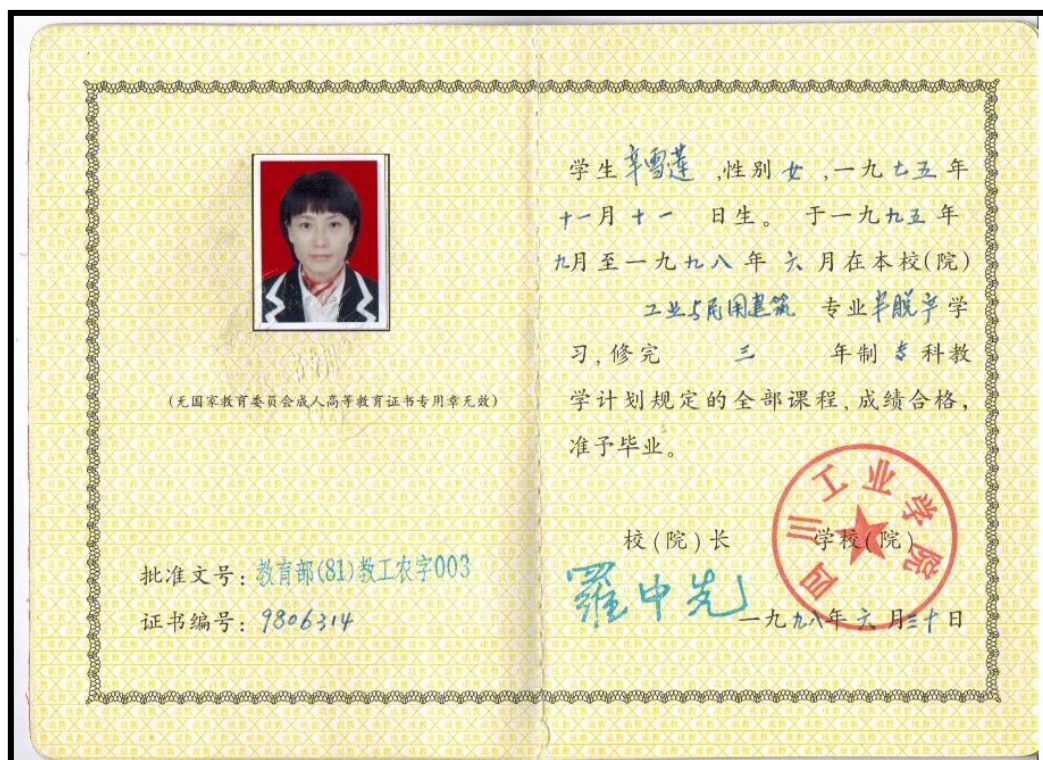 (无国家教育委员会成人高等教育证书专用章无效)
批准文号:教育部(81)教工农字003
证书编号:9806314
学生辛雪莲,性别女,一九七五年
十一月十一日生。于一九九五年
九月至一九九八年六月在本校(院)
工业与民用建筑 专业半脱产学
习,修完 三 年制专科教
学计划规定的全部课程,成绩合格,
准予毕业。
校(院)长 学校(院)
罗中先
四川工业学院
一九九八年六月三十日